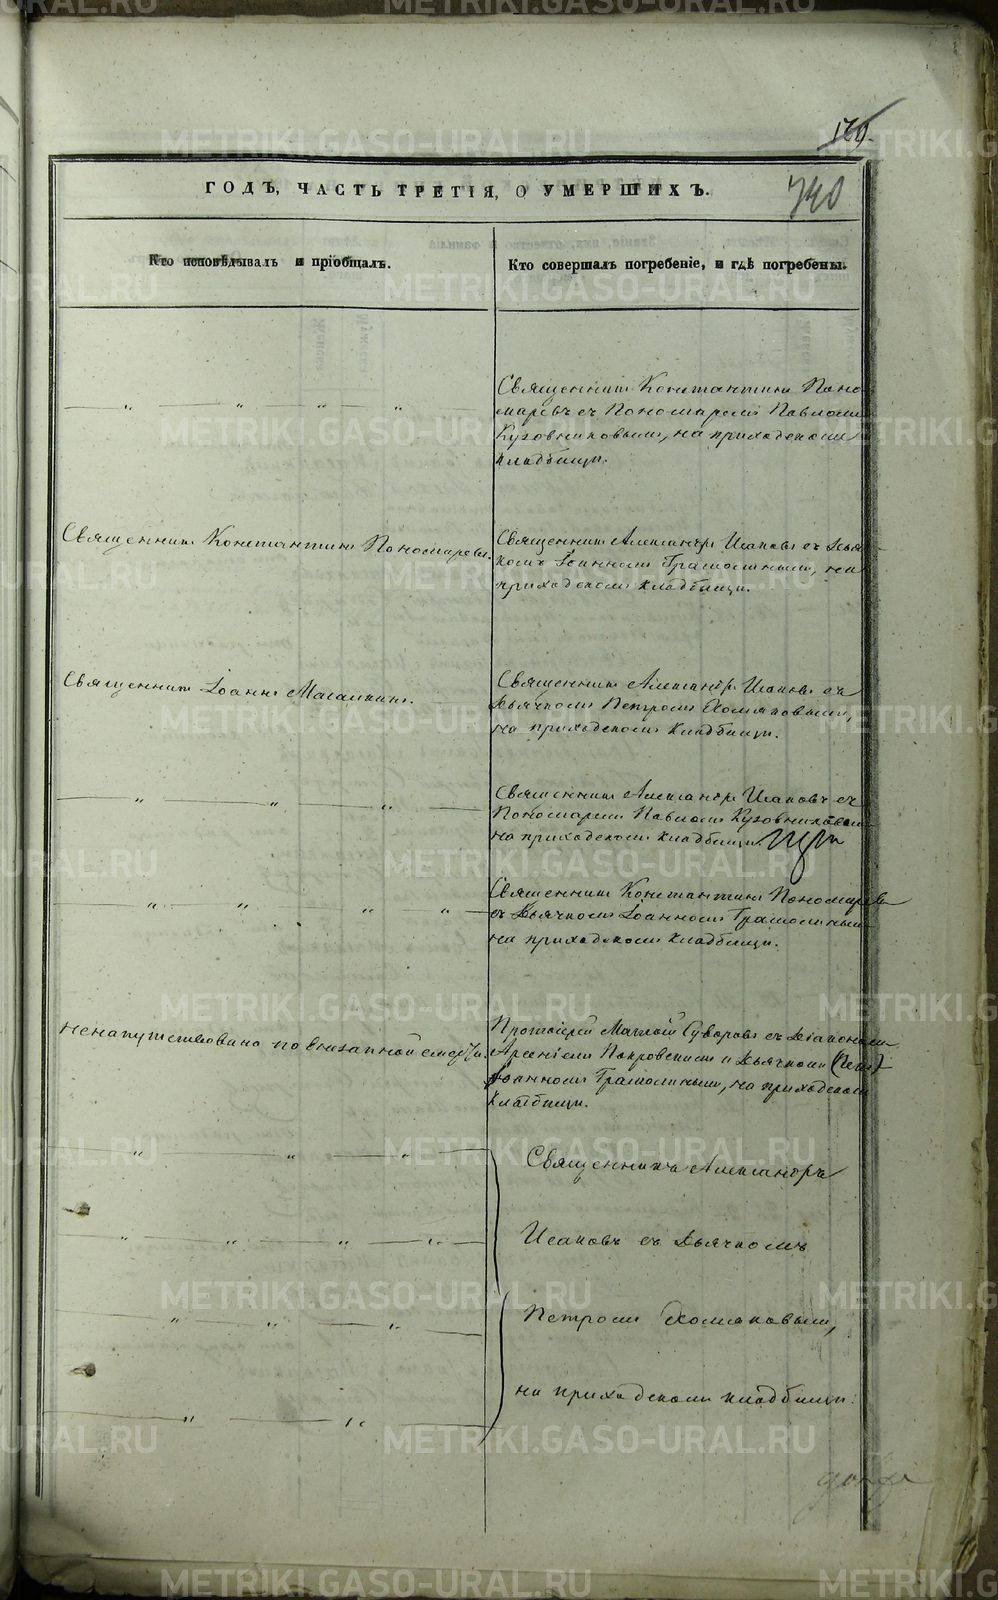 169.
740
ГОДЪ, ЧАСТЬ ТРЕТІЯ, О УМЕРШИХЪ.
Кто исповѣдывалъ и пріобщалъ.
Кто совершалъ погребеніе, и гдѣ погребены.
Священникъ Константинъ Поно-
маревъ съ Пономаремъ Павломъ
Кузовниковымъ, на приходскомъ
кладбищѣ.
Священникъ Константинъ Пономаревъ.
Священникъ Александръ Исаковъ съ Дья-
комъ Іоанномъ Грамолинымъ, на
приходскомъ кладбищѣ.
Священникъ Іоаннъ
Священникъ Александръ Исаковъ съ
Дьячкомъ Петромъ Хомяковымъ,
на приходскомъ кладбищѣ.
Священникъ Александръ Исаковъ съ
Пономаремъ Павломъ Кузовниковымъ
на приходскомъ кладбищѣ.
Священникъ Константинъ Пономаревъ
съ Дьячкомъ Іоанномъ Грамолинымъ
на приходскомъ кладбищѣ.
Ненапутствовано по внезапной смерти.
Протоіерей Матѳій Суворовъ съ Діакономъ
Арсеніемъ Покровскимъ и Дьячкомъ
Іоанномъ Грамолинымъ, на приходскомъ
кладбищѣ.
Священникъ Александръ
Исаковъ съ Дьячкомъ
Петромъ Хомяковымъ,
на приходскомъ кладбищѣ.
METRIKI.GASO-URAL.RU